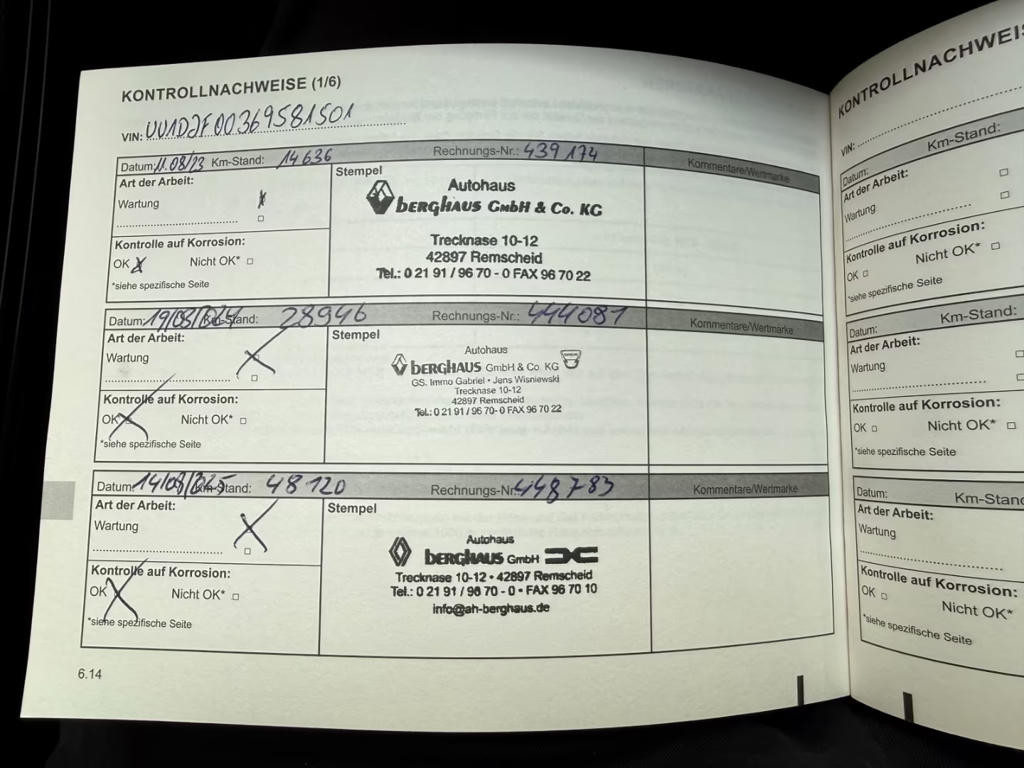 KONTROLLNACHWEISE (1/6)
VIN: UU1DJF00369581501
Datum: 11.08/23 Km-Stand: 14636 Rechnungs-Nr.: 439174 Kommentare/Wertmarke
Art der Arbeit:
Wartung
Kontrolle auf Korrosion:
OK X Nicht OK* □
*siehe spezifische Seite
Stempel
Autohaus
BERGHAUS GmbH & Co. KG
Trecknase 10-12
42897 Remscheid
Tel.: 0 21 91 / 96 70 - 0 FAX 96 70 22
Datum: Km-Stand: 28946 Rechnungs-Nr.: 444081 Kommentare/Wertmarke
Art der Arbeit:
Wartung
Kontrolle auf Korrosion:
OK X Nicht OK* □
*siehe spezifische Seite
Stempel
Autohaus
BERGHAUS GmbH & Co. KG
GS. Immo Gabriel • Jens Wisniewski
Trecknase 10-12
42897 Remscheid
Tel.: 0 21 91 / 96 70- 0 FAX 96 70 22
Datum: Km-Stand: 48120 Rechnungs-Nr.: 448783 Kommentare/Wertmarke
Art der Arbeit:
Wartung
Kontrolle auf Korrosion:
OK X Nicht OK* □
*siehe spezifische Seite
Stempel
Autohaus
BERGHAUS GmbH
Trecknase 10-12 • 42897 Remscheid
Tel.: 0 21 91 / 96 70 - 0 • FAX 96 70 10
info@ah-berghaus.de
6.14
KONTROLLNACHWEIS
VIN:
Datum: Km-Stand:
Art der Arbeit:
Wartung
Kontrolle auf Korrosion:
OK □ Nicht OK* □
*siehe spezifische Seite
Datum: Km-Stand:
Art der Arbeit:
Wartung
Kontrolle auf Korrosion:
OK □ Nicht OK* □
*siehe spezifische Seite
Datum: Km-Stand
Art der Arbeit:
Wartung
Kontrolle auf Korrosion:
OK □ Nicht OK*
*siehe spezifische Seite